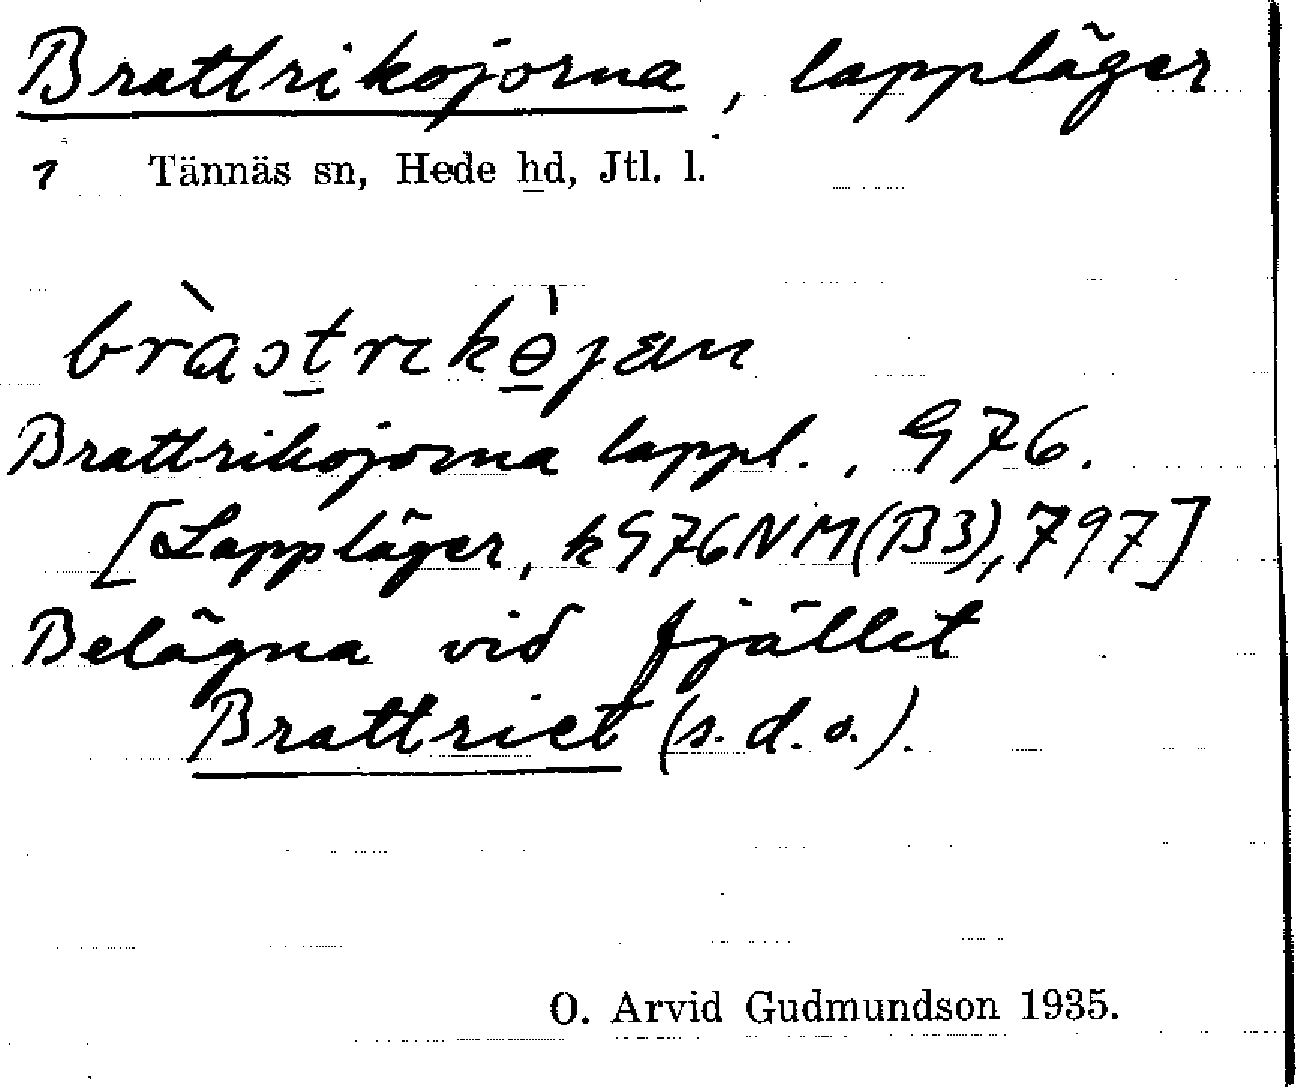 Brattrikojorna, lappläger
1 Tännäs sn, Hede hd, Jtl. l.
Brattrikojorna lappl., G76.
[Lappläger, kG76NM(B3), 797]
Belägna vid fjället
Brattriet (s.d.o.).
O. Arvid Gudmundson 1935.